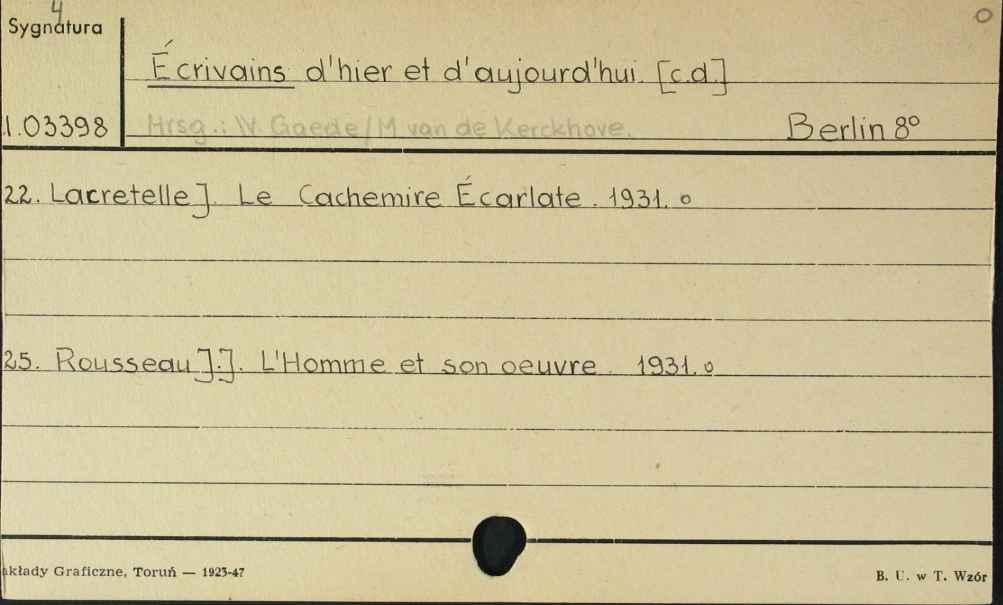 4
Sygnatura
Écrivains d'hier et d'aujourd'hui. [c.d.]
I.03398 Hrsg.: W Gaede / M van de Kerckhove. Berlin 8º
22. Lacretelle J. Le Cachemire Écarlate. 1931. o
25. Rousseau J.J. L'Homme et son oeuvre 1931. o
akłady Graficzne, Toruń — 1923-47 B. U. w T. Wzór